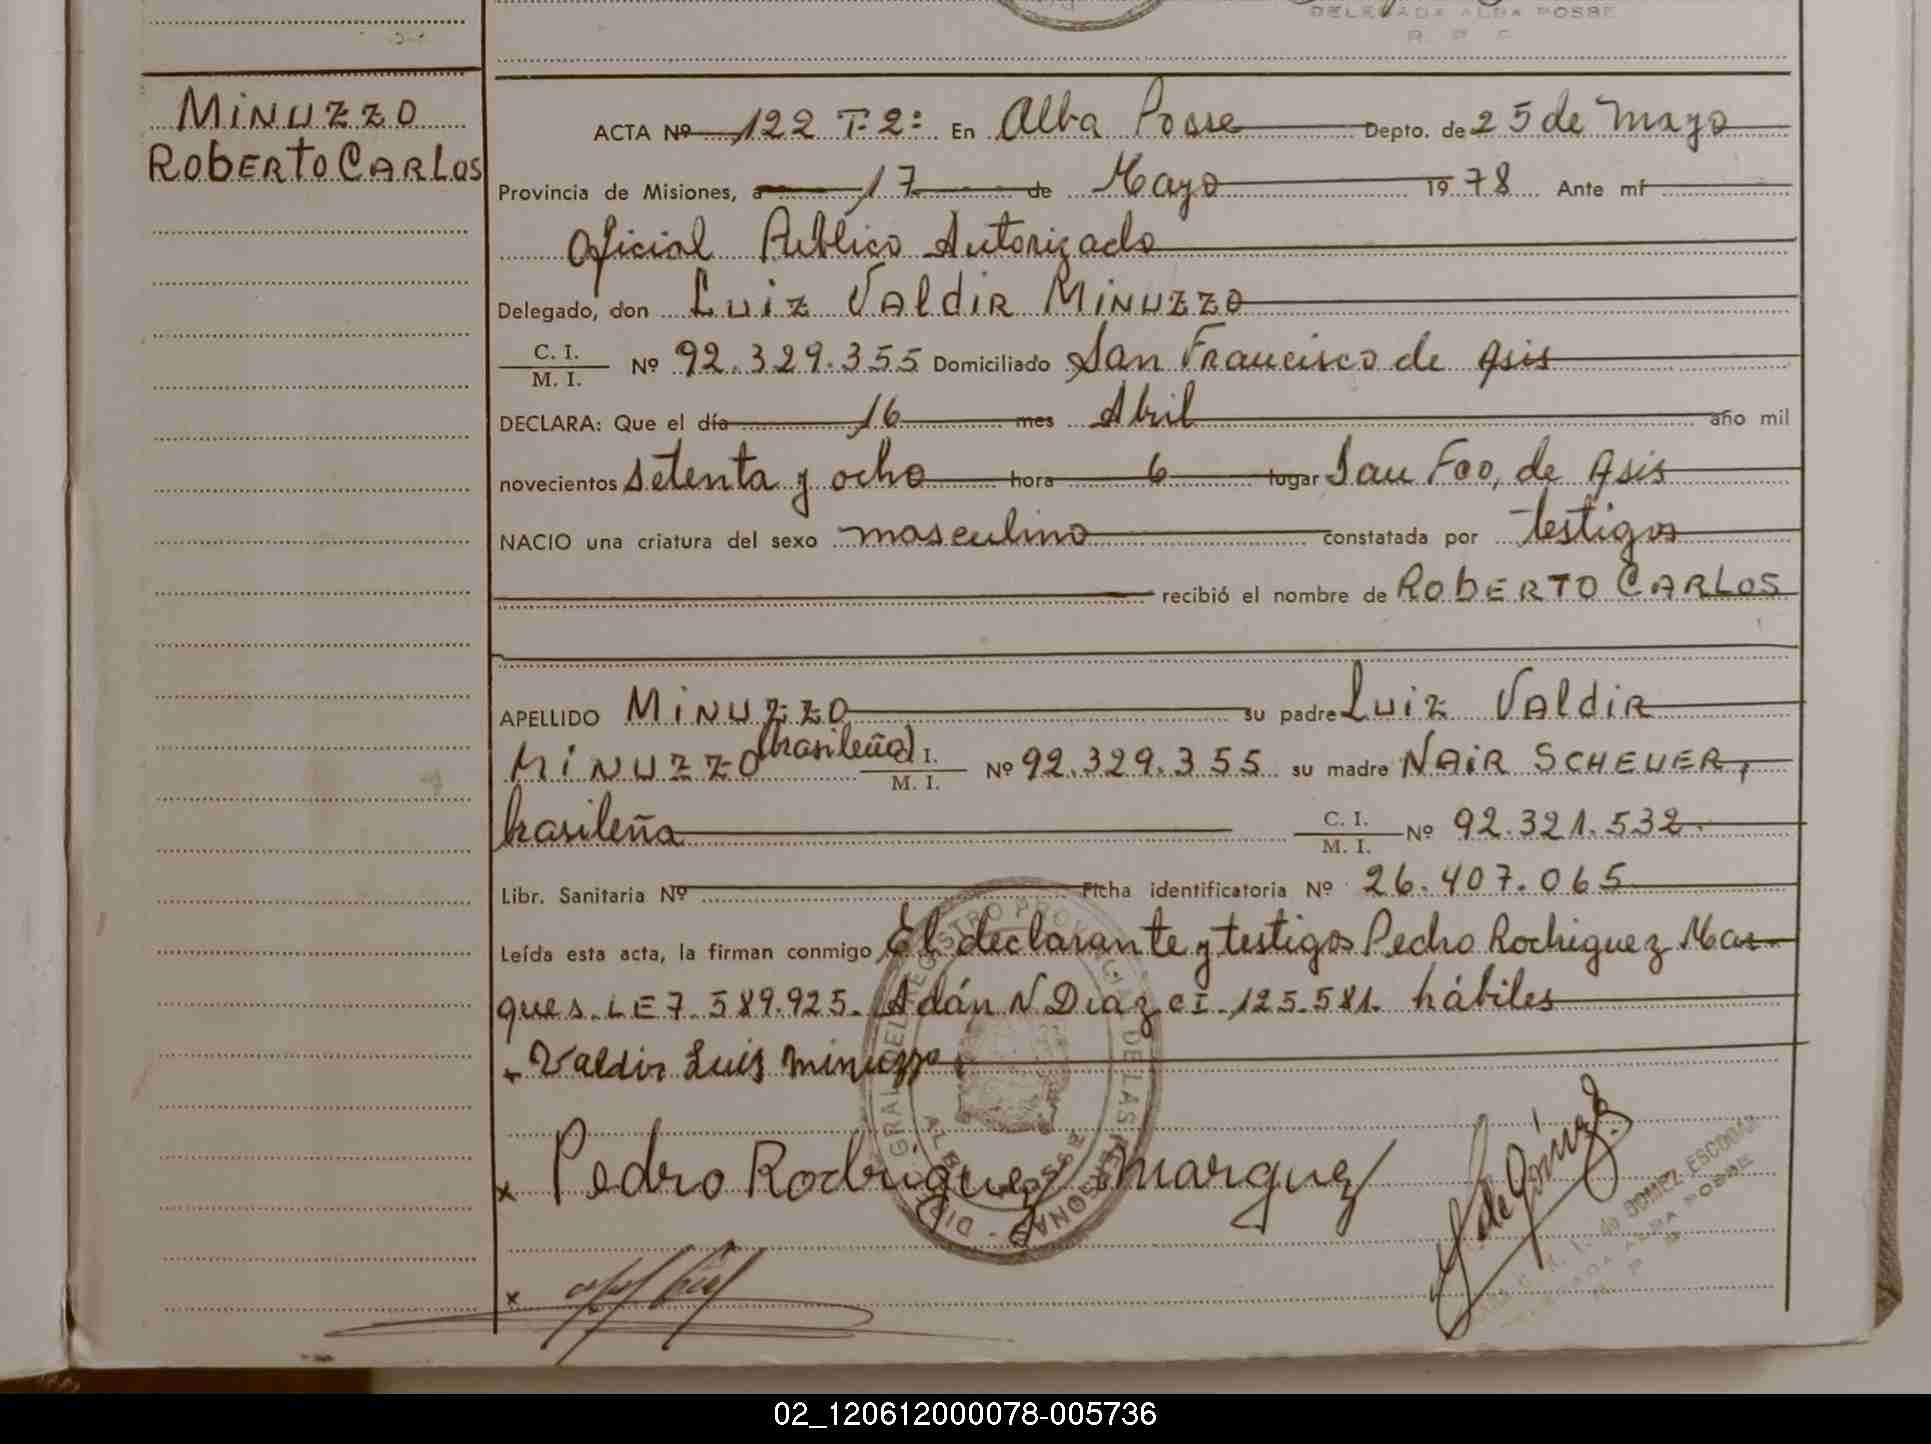 DELEGADA ALBA POSSE
R. P. F.
MINUZZO
ROBERTO CARLOS
ACTA Nº 122 T-2: En Alba Posse Depto. de 25 de Mayo
Provincia de Misiones, a 17 de Mayo 1978 Ante mí
Oficial Publico Autorizado
Delegado, don LUIZ VALDIR MINUZZO
C. I.
M. I. Nº 92.329.355 Domiciliado San Francisco de Asis
DECLARA: Que el día 16 mes Abril año mil
novecientos setenta y ocho hora 6 lugar San Fco, de Asis
NACIO una criatura del sexo masculino constatada por testigos
recibió el nombre de ROBERTO CARLOS
APELLIDO MINUZZO su padre LUIZ VALDIR
MINUZZO (brasileña) I.
M. I. Nº 92.329.355 su madre NAIR SCHEUER,
brasileña C. I.
M. I. Nº 92.321.532.
Libr. Sanitaria Nº Ficha identificatoria Nº 26.407.065
Leída esta acta, la firman conmigo El declarante y testigos Pedro Rodriguez Mar-
ques. LE 7.589.925. Adán N. Diaz CI. 125.581. hábiles
Valdir Luis Minuzzo
x Pedro Rodriguez Marquez
x
DIR. GRAL DEL REGISTRO PROVINCIAL DE LAS PERSONAS
ALBA POSSE
de Gómez
de GOMEZ ESCOBAR
DELEGADA ALBA POSSE
R. P.
02_120612000078-005736